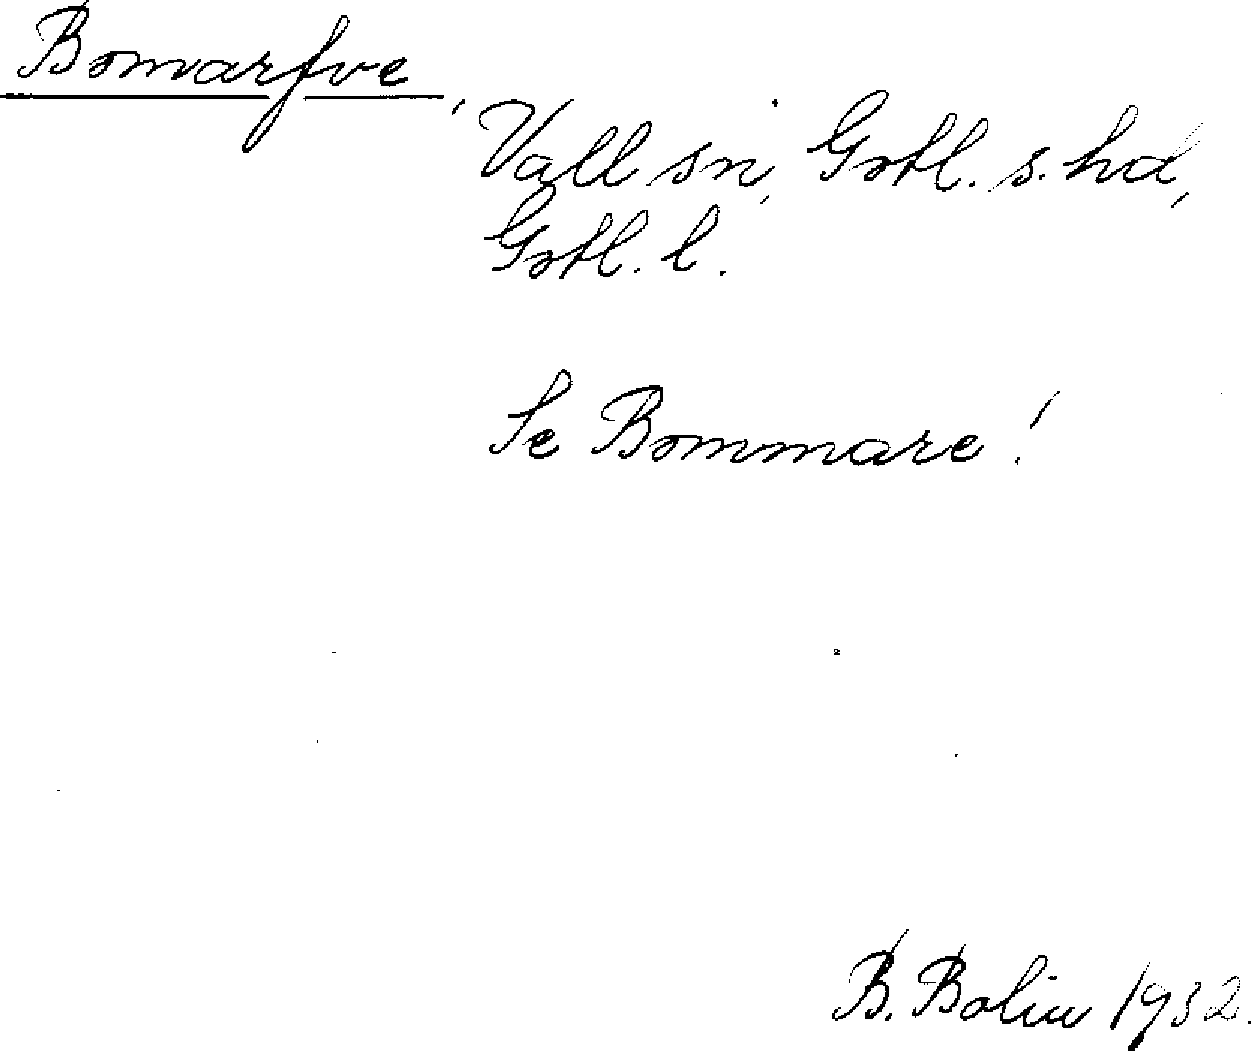 Bomarfve,
Vall sn, Gotl. s. hd,
Gotl. l.
Se Bommare!
B. Bolin 1932.